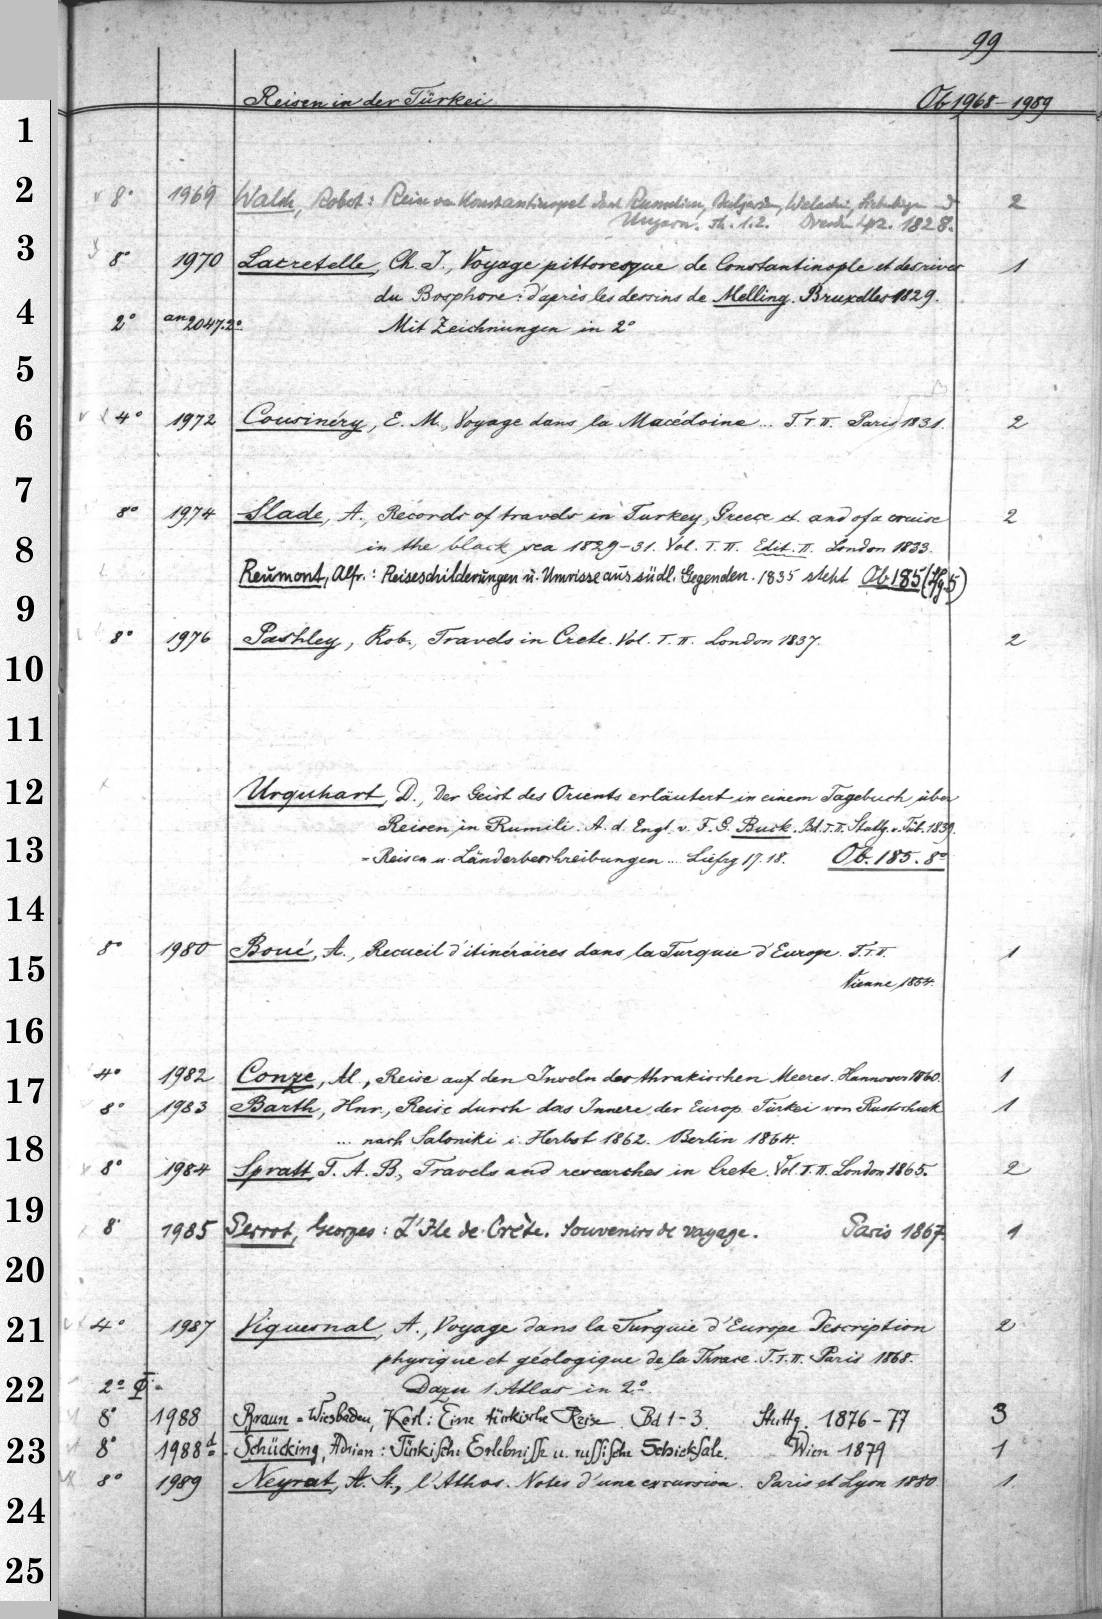 99
Reisen in der Türkei Ob 1968-1989
1
2
3
4
5
6
7
8
9
10
11
12
13
14
15
16
17
18
19
20
21
22
23
24
25
8° 1969 Walsh, Robst: Reise von Konstantinopel durch Rumelien, 2
Ungarn. Th. 1.2. Dresden Lpz. 1828.
8° 1970 Lacretelle, Ch. J., Voyage pittoresque de Constantinople et des rives 1
du Bosphore: d'après les dessins de Melling. Bruxelles 1829.
2° an 2047.2° Mit Zeichnungen in 2°
4° 1972 Cousinéry, E. M., Voyage dans la Macédoine... T. I. II. Paris 1831. 2
8° 1974 Slade, A., Records of travels in Turkey, Greece et. and of a cruise 2
in the black sea 1829-31. Vol. I. II. Edit. II. London 1833.
Reumont, Alfr.: Reiseschilderungen u. Umrisse aus südl. Gegenden. 1835 steht Ob 185 (Lfg. 5)
8° 1976 Pashley, Rob., Travels in Crete. Vol. I. II. London 1837. 2
Urquhart, D., Der Geist des Orients erläutert in einem Tagebuch über
Reisen in Rumili. A. d. Engl. v. F. G. Buck. Bd. I. II. Stuttg. u. Tüb. 1839.
= Reisen u. Länderbeschreibungen... Liefrg 17. 18. Ob. 185. 8°
8° 1980 Boué, A., Recueil d'itinéraires dans la Turquie d'Europe. T. I. II. 1
Vienne 1854.
4° 1982 Conze, Al., Reise auf den Inseln des thrakischen Meeres. Hannover 1860. 1
8° 1983 Barth, Hnr., Reise durch das Innere der Europ. Türkei von Rustschuk 1
... nach Saloniki i. Herbst 1862. Berlin 1864.
8° 1984 Spratt T. A. B., Travels and researches in Crete. Vol. I. II. London 1865. 2
8° 1985 Perrot, Georges: L'Ile de Crète. Souvenirs de voyage. Paris 1867. 1
4° 1987 Viquesnal, A., Voyage dans la Turquie d'Europe Description 2
physique et géologique de la Thrace. T. I. II. Paris 1868.
2° Dazu 1 Atlas in 2°.
8° 1988 Braun = Wiesbaden, Karl: Eine türkische Reise. Bd 1-3. Stuttg. 1876-77 3
8° 1988 d Schücking, Adrian: Türkische Erlebnisse u. russische Schicksale. Wien 1879 1
8° 1989 Neyrat, A. St., l'Athos. Notes d'une excursion. Paris et Lyon 1880. 1.